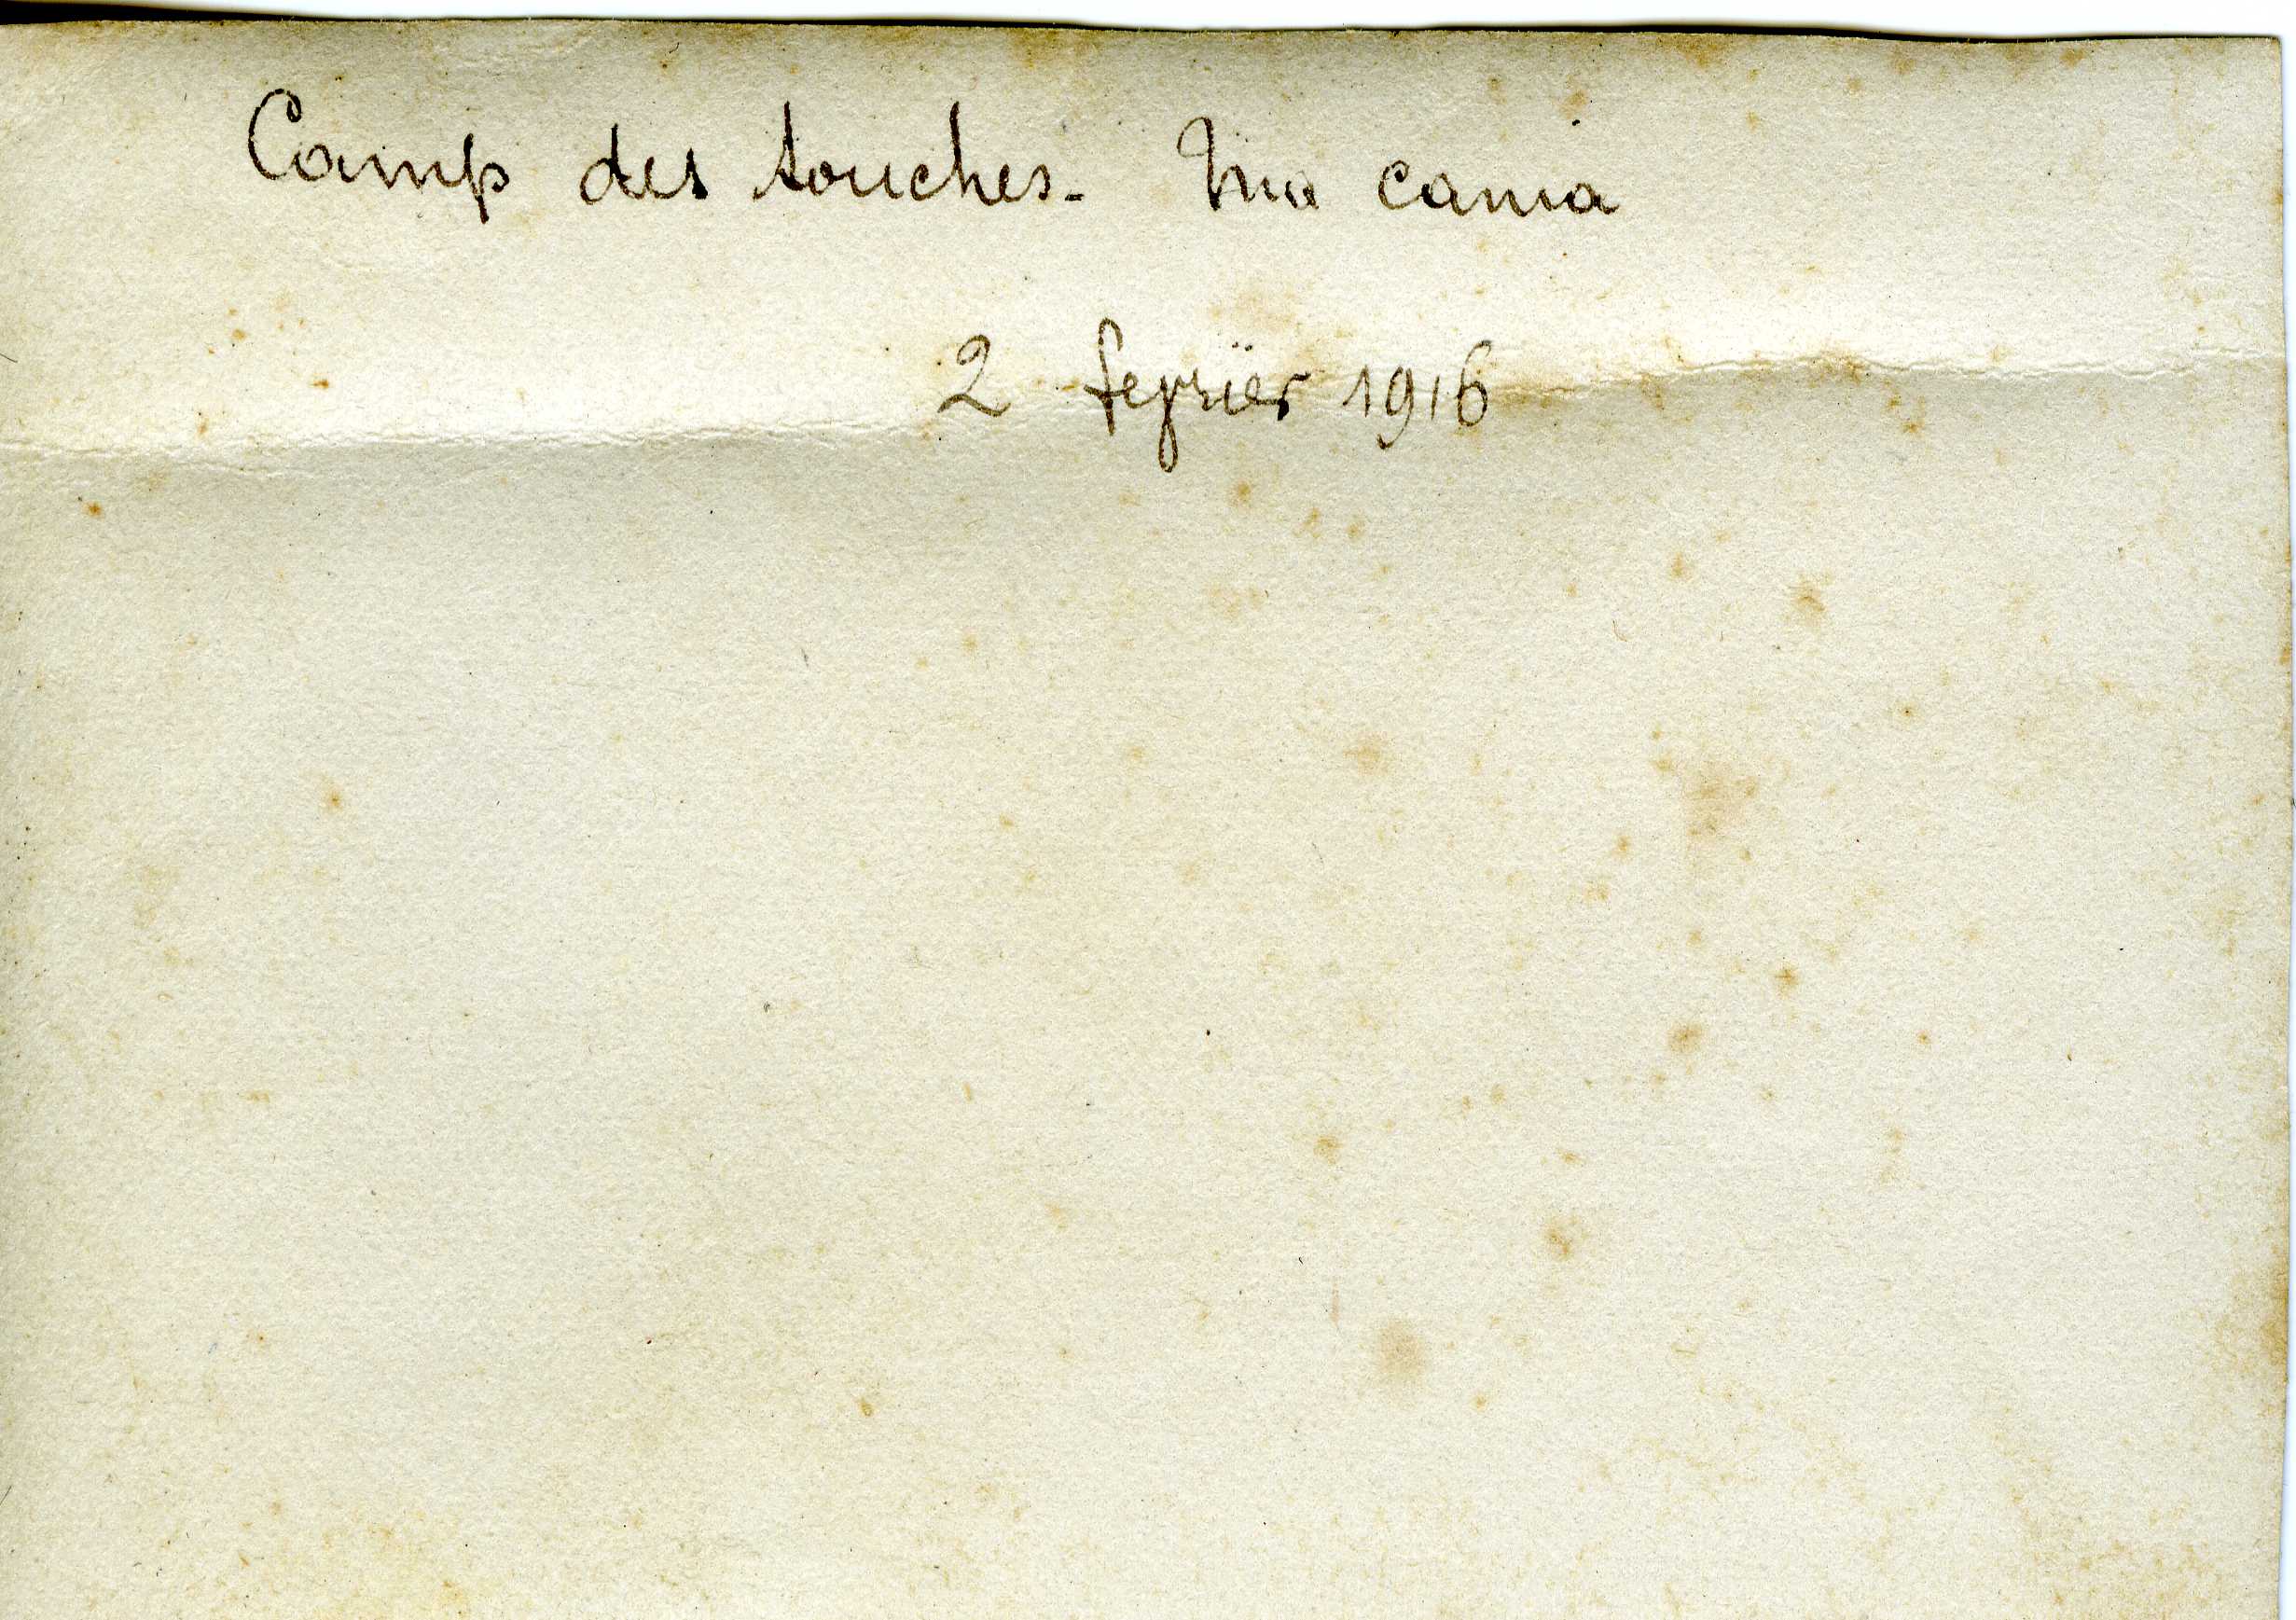 Camp des touches. Ma cania
2 fevrier 1916